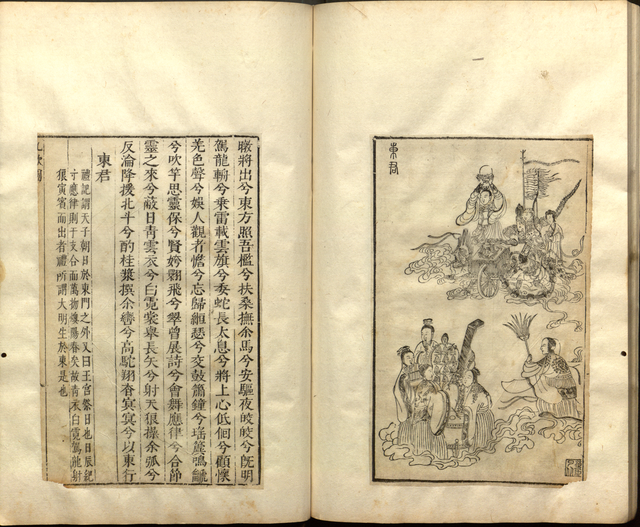 暾將出兮東方照吾檻兮扶桑撫余馬兮安驅夜皎皎兮既明
駕龍輈兮乘雷載雲旗兮委蛇長太息兮將上心低佪兮顧懷
羌色聲兮娛人觀者憺兮忘歸緪瑟兮交鼓簫鐘兮瑤簴鳴鷈
兮吹竽思靈保兮賢姱翾飛兮翠曾展詩兮會舞應律兮合節
靈之來兮蔽日青雲衣兮白霓裳舉長矢兮射天狼操余弧兮
反淪降援北斗兮酌桂漿撰余轡兮高駝翔杳冥冥兮以東行
東君
禮記謂天子朝日於東門之外又曰王宮祭日也日辰紀
寸應律則于支合而萬物雖陽春矣故青衣白霓駕龍射
狼寅賓而出者禮所謂大明生於東是也
東君